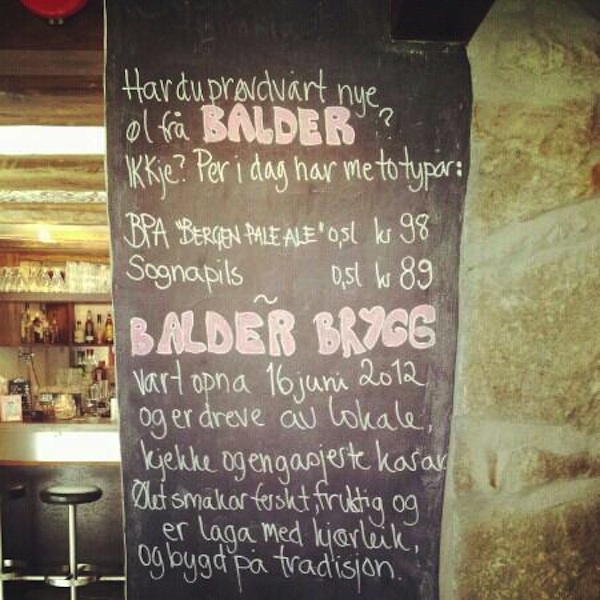 Har du prøvd vårt nye
øl frå BALDER?
IKKje? Per i dag har me to typar:
BPA "BERGEN PALE ALE" 0,5l kr 98
Sognapils 0,5l kr 89
BALDER BRYGG
vart opna 16 juni 2012
og er dreve av lokale,
kjekke og engasjerte karar
Ølet smakar ferskt, fruktig og
er laga med kjærleik,
og bygd på tradisjon.